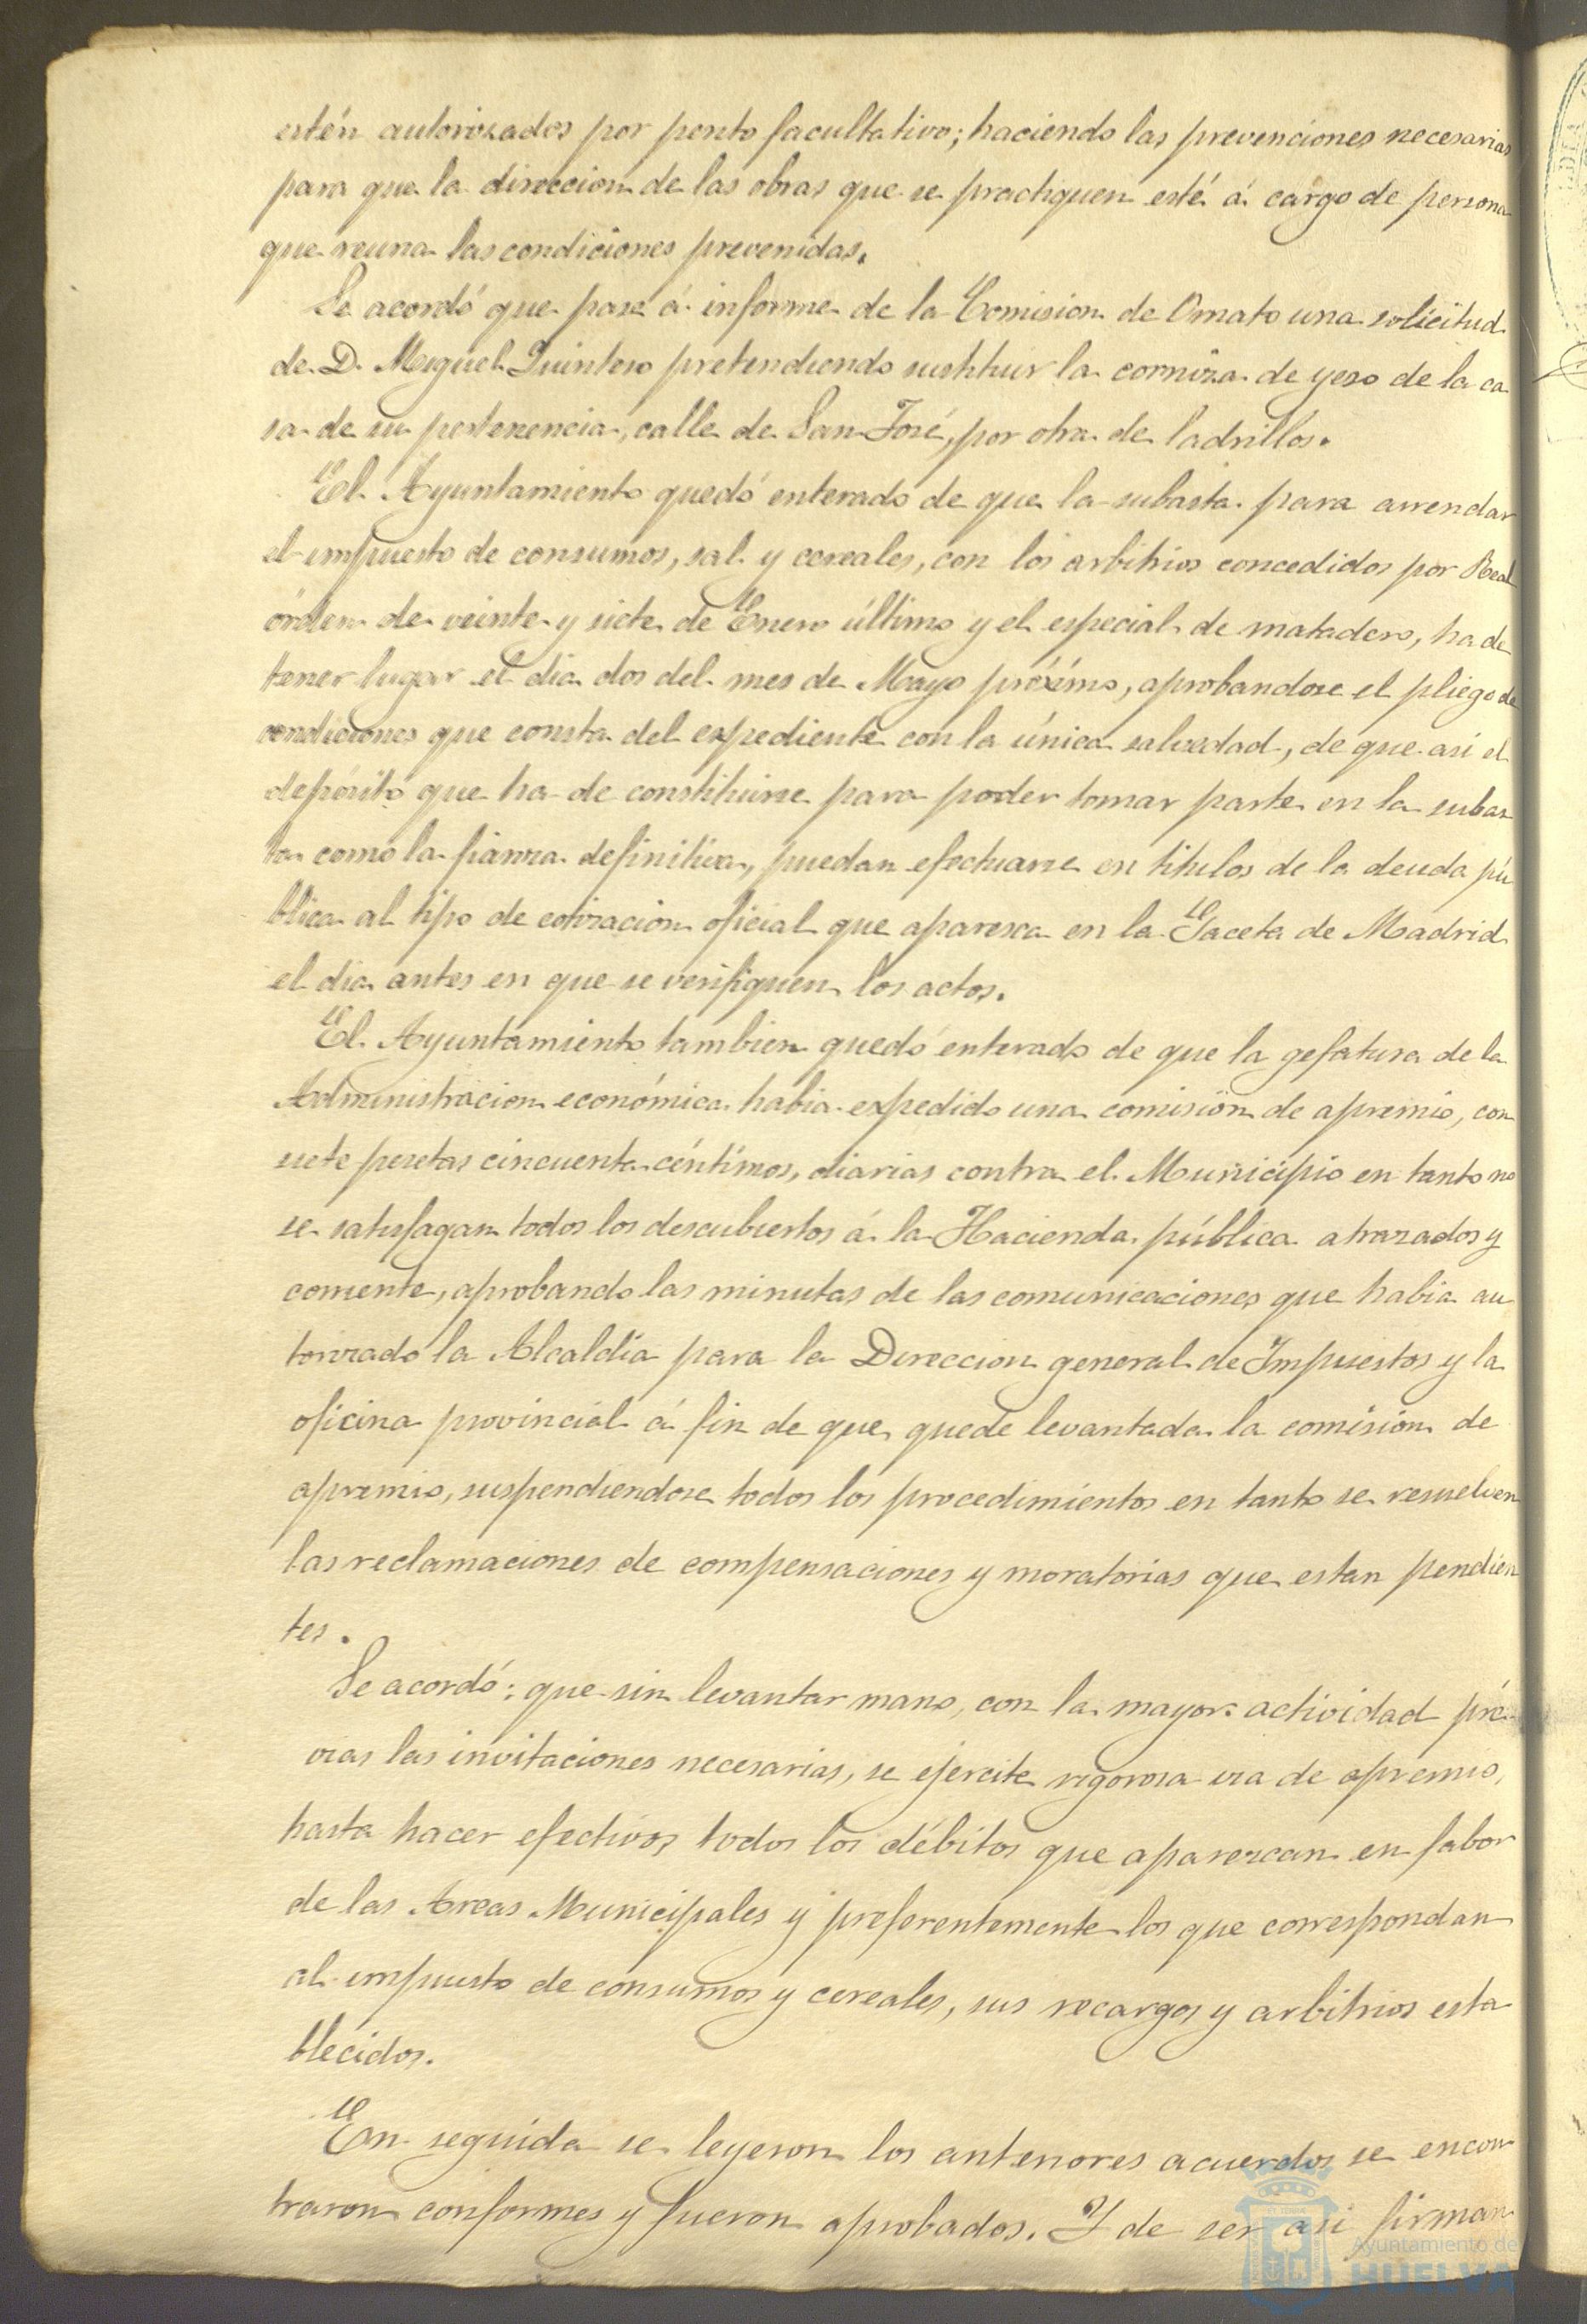 estén autorizados por perito facultativo; haciendo las prevenciones necesarias
para que la direccion de las obras que se practiquen esté á cargo de persona
que reuna las condiciones prevenidas.
Se acordó que pase á informe de la Comision de Ornato una solicitud
de D. Miguel Quintero pretendiendo sustituir la corniza de yeso de la ca
sa de su pertenencia, calle de San José, por otra de ladrillos.
El Ayuntamiento quedó enterado de que la subasta para arrendar
el impuesto de consumos, sal y cereales, con los arbitrios concedidos por Real
órden de veinte y siete de Enero último y el especial de matadero, ha de
tener lugar el dia dos del mes de Mayo próximo, aprobandose el pliego de
condiciones que consta del expediente con la única salvedad, de que asi el
depósito que ha de constituirse para poder tomar parte en la subas
ta como la fianza definitiva, puedan efectuarse en titulos de la deuda pú
blica al tipo de cotizacion oficial que aparesca en la Gaceta de Madrid
el dia antes en que se verifiquen los actos.
El Ayuntamiento tambien quedó enterado de que la gefatura de la
Administracion económica habia expedido una comision de apremio, con
siete pesetas cincuenta céntimos, diarias contra el Municipio en tanto no
se satisfagan todos los descubiertos á la Hacienda pública atrazados y
corriente, aprobando las minutas de las comunicaciones que habia au
torizado la Alcaldía para la Direccion general de Impuestos y la
oficina provincial á fin de que quede levantada la comision de
apremio, suspendiendose todos los procedimientos en tanto se resuelven
las reclamaciones de compensaciones y moratorias que estan pendien
tes.
Se acordó: que sin levantar mano, con la mayor actividad pré
vias las invitaciones necesarias, se ejercite rigorosa via de apremio,
hasta hacer efectivos todos los débitos que aparezcan en fabor
de las Arcas Municipales y preferentemente los que correspondan
al impuesto de consumos y cereales, sus recargos y arbitrios esta
blecidos.
En seguida se leyeron los anteriores acuerdos se encon
traron conformes y fueron aprobados. Y de ser asi firman
Ayuntamiento de
HUELVA